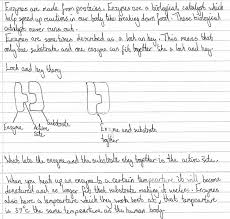 Enzymes are made from proteins. Enzymes are a biological catalysts which
help speed up reactions in our body like breaking down food. These biological
catalysts never runs out.
Enzymes are sometimes described as a lock an key. This means that
only one substrate and one enzyme can fit together like a lock and key.
Lock and key theory
Enzyme
Active site
substrate
Enzyme and substrate
together
the enzyme and the substrate stay together is the active site.
When you heat up an enzyme to a certain temperature it will become
denatured and no longer fit that substrate making it useless. Enzymes
also have a temperature which they work best at, that temperature
is 37°C the same temperature as the human body.